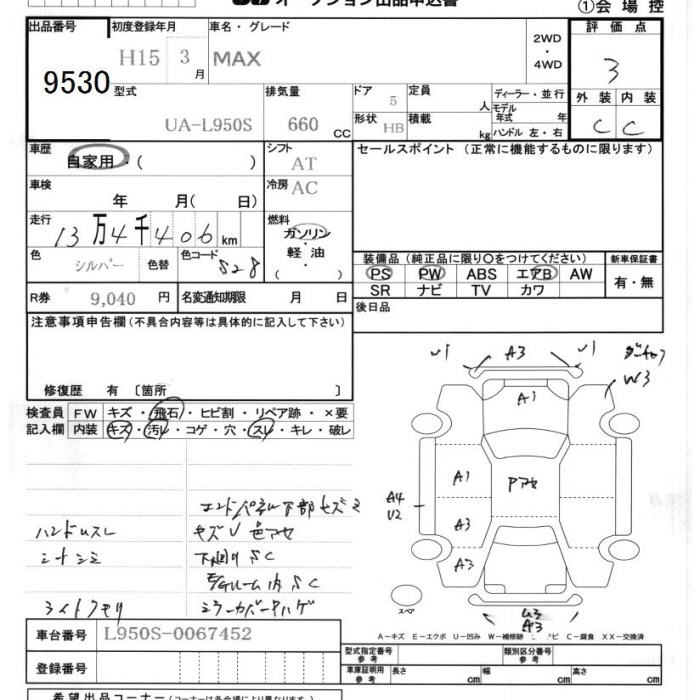 オークション出品申込書
①会場控
出品番号 初度登録年月 車名・グレード 評価点
9530
H15 3月 MAX 2WD・4WD 3
型式 排気量 ドア 定員 人 ディーラー・並行 外装 内装
UA-L950S 660 CC 5 モデル年式 年
形状 HB 積載 kg ハンドル 左・右 C C
車歴 自家用・( ) シフト AT セールスポイント(正常に機能するものに限ります)
車検 年 月( 日) 冷房 AC
走行 13万4千406km 燃料 ガソリン・軽油 ( )
色 シルバー 色替 色コード S28
装備品(純正品に限り○をつけてください) 新車保証書
PS PW ABS エアB AW 有・無
SR ナビ TV カワ
R券 9,040 円 名変通知期限 月 日 後日品
注意事項申告欄(不具合内容等は具体的に記入して下さい)
修復歴 有 〔箇所 〕
検査員記入欄 FW キズ・飛石・ヒビ割・リペア跡・×要
内装 キズ・汚レ・コゲ・穴・スレ・キレ・破レ
U1 A3 U1
W3
A1
A1 Pアセ
A4
U2
A3
A3
エンドパネル下部キズミ
ハンドルスレ キズU 色アセ
シートシミ 下廻りSC
フレーム内SC
ライトクモリ ミラーカバーハゲ
スペア
A3
A-キズ E-エクボ U-凹み W-補修跡 C-腐食 XX-交換済
車台番号 L950S-0067452
登録番号
型式指定番号 参考 類別区分番号 参考
車庫証明用 参考 長さ 幅 高さ cm
希望出品コーナー